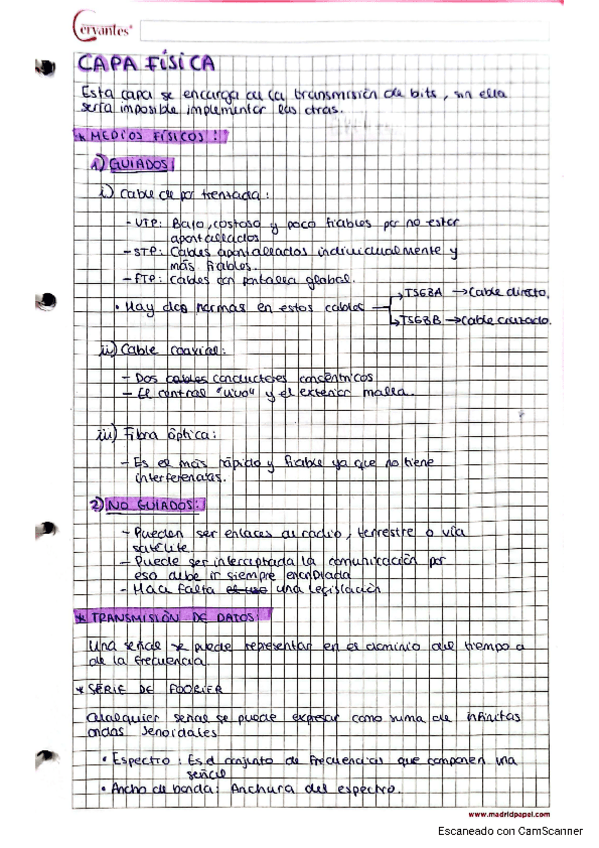 Cervantes®
CAPA FÍSICA
Esta capa se encarga de la transmisión de bits, sin ella
sería imposible implementar las otras.
* MEDIOS FÍSICOS:
1) GUIADOS:
i) Cable de par trenzado:
- UTP: Bajo, costoso y poco fiables por no estar
apantallados
- STP: Cables apantallados individualmente y
más fiables.
- FTP: Cables con pantalla global.
• Hay dos normas en estos cables → T568A → Cable directo.
→ T568B → Cable cruzado.
ii) Cable coaxial:
- Dos cables conductores concéntricos
- El central "vivo" y el exterior malla.
iii) Fibra óptica:
- Es el más rápido y fiable ya que no tiene
interferencias.
2) NO GUIADOS:
- Pueden ser enlaces de radio, terrestre o vía
satélite
- Puede ser interceptada la comunicación por
eso debe ir siempre encriptada
- Hace falta una legislación
* TRANSMISIÓN DE DATOS
Una señal se puede representar en el dominio del tiempo o
de la frecuencia
* SERIE DE FOORIER
Cualquier señal se puede expresar como suma de infinitas
ondas senoidales
• Espectro: Es el conjunto de frecuencias que componen una
señal
• Ancho de banda: Anchura del espectro.
www.madridpapel.com
Escaneado con CamScanner